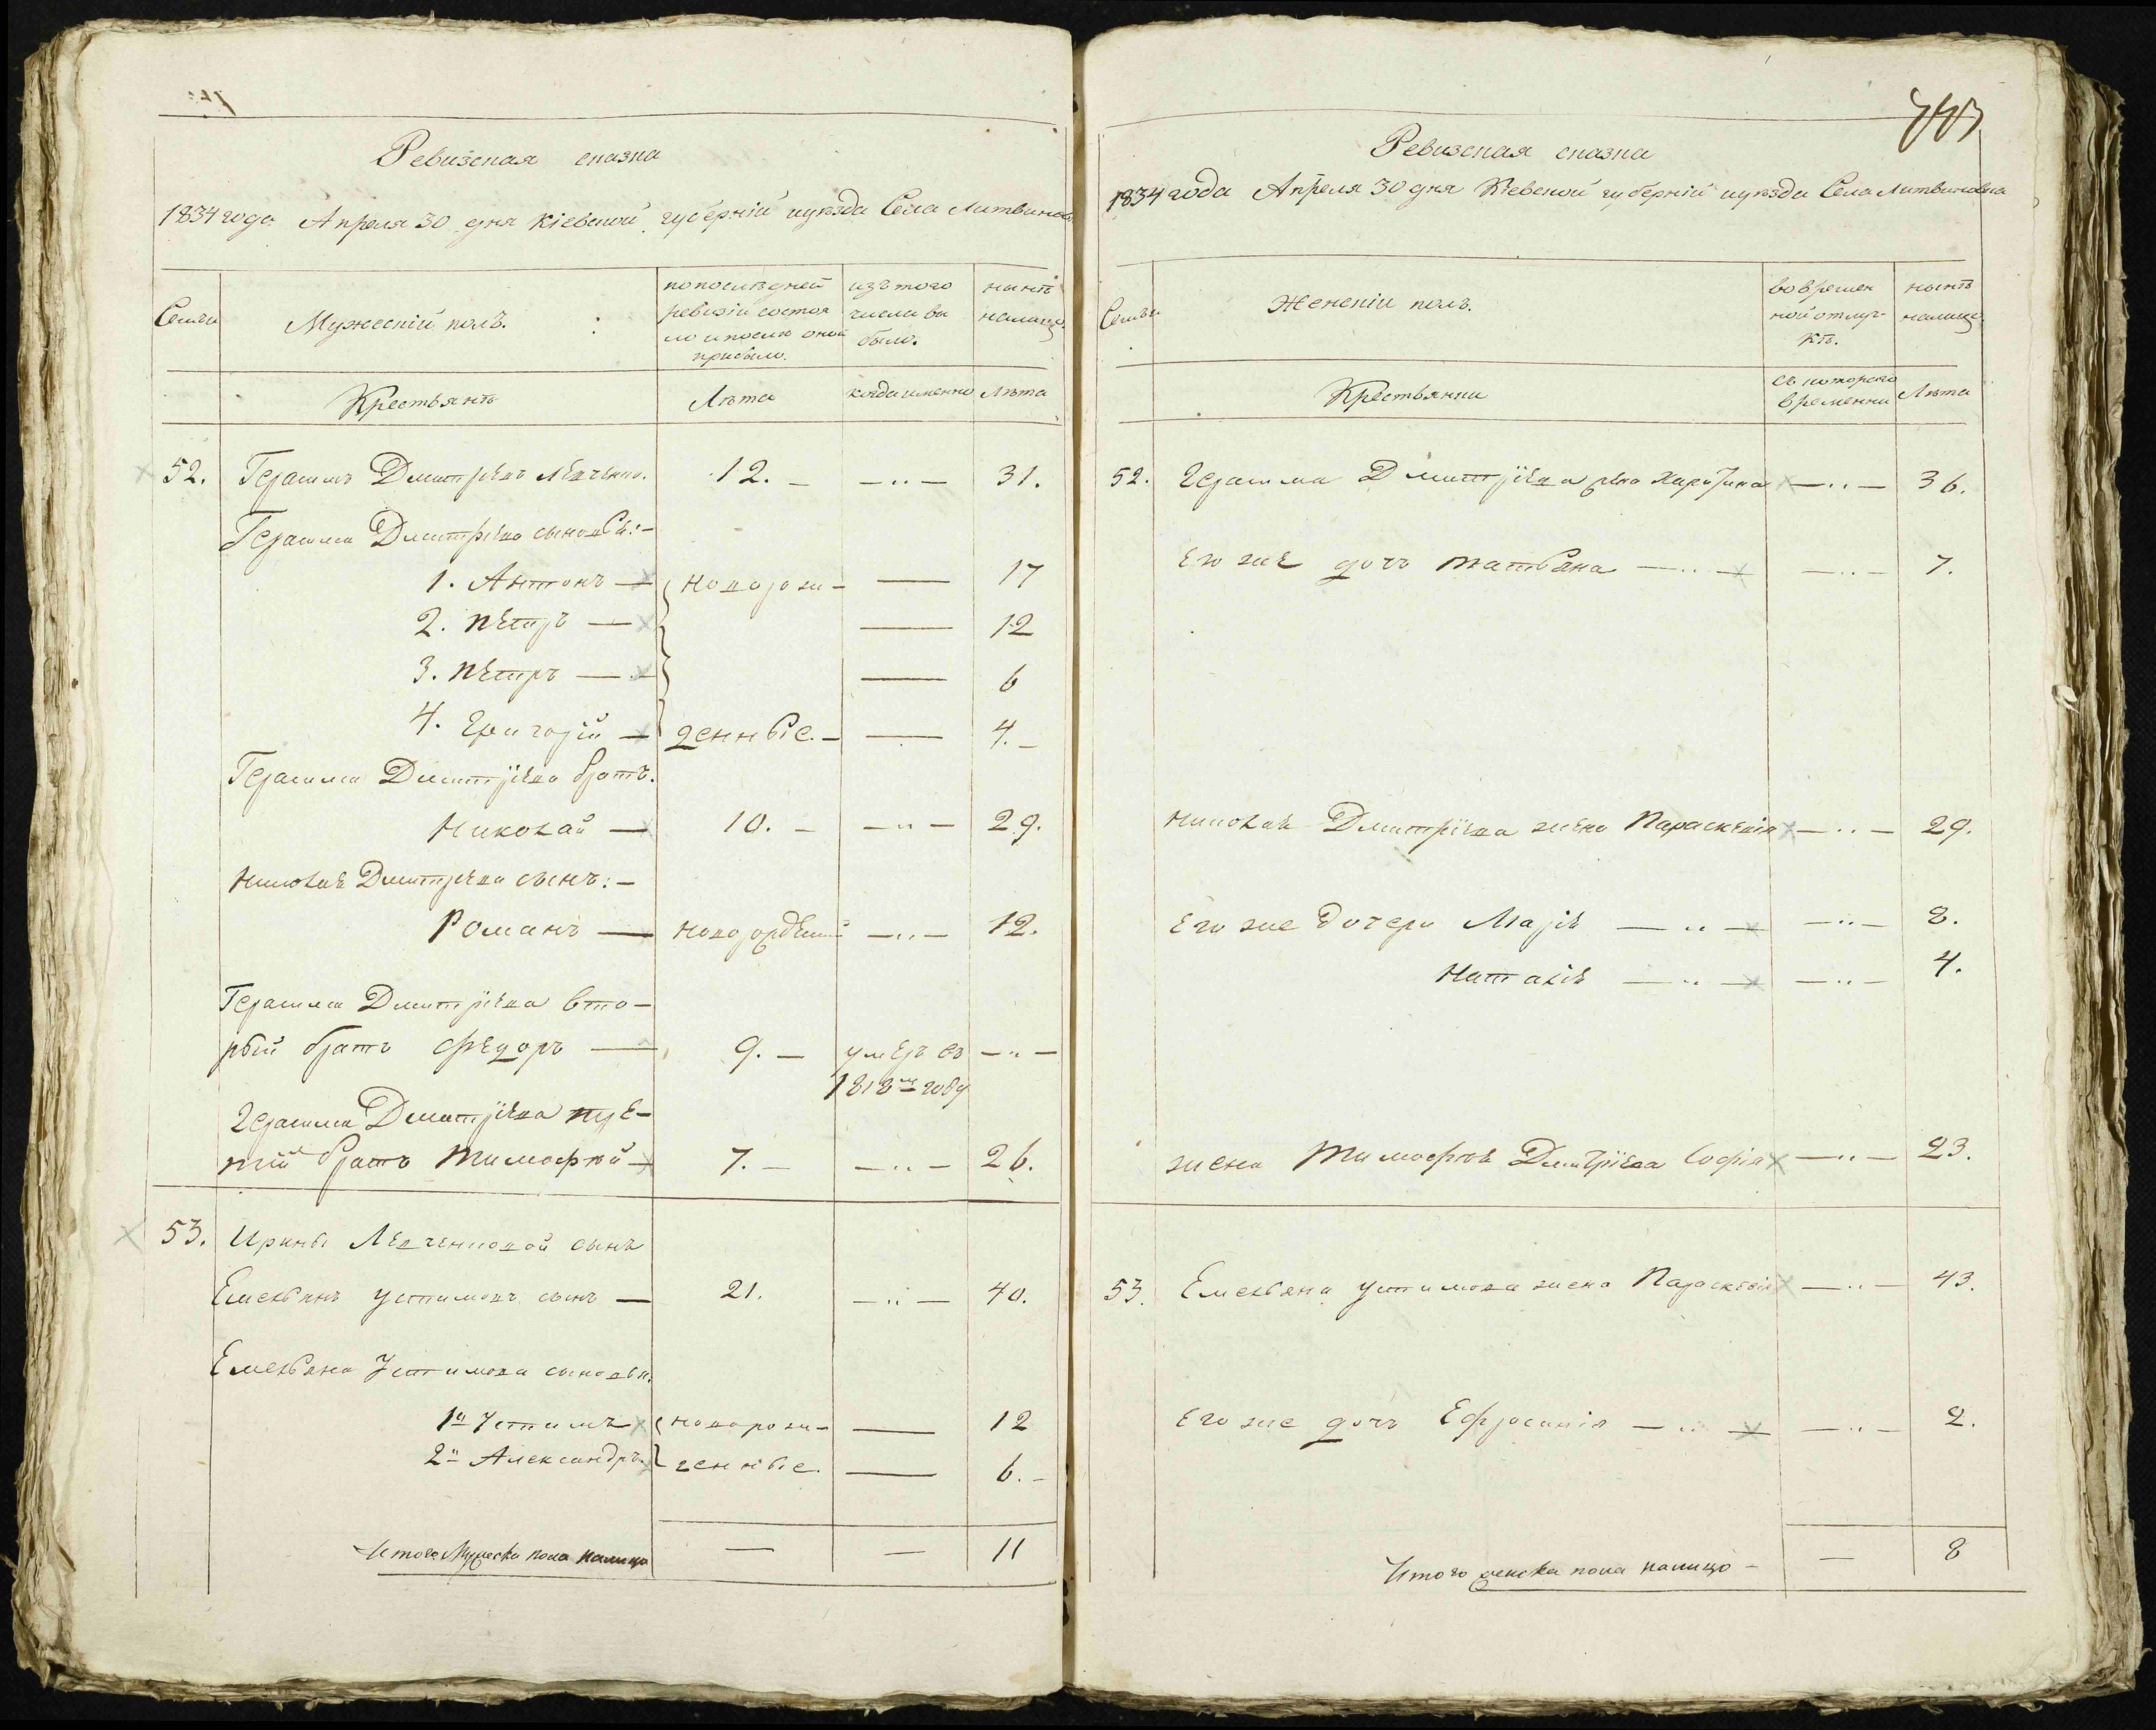 Ревизская сказка
1834 года Апреля 30 дня Кіевской губерніи и уезда Села Литвиновка
Семьи
Мужескій полъ.
по последней ревизіи состояло и после оной прибыло.
изъ того числа выбыло.
ныне налицо
Крестьянъ
Лета
когда именно
Лета
52. Герасимъ Дмитріевъ Левченко. 12. — — „ — 31.
Герасима Дмитріева сыновья: —
1. Антонъ — новорож- — 17
2. Петръ — — 12
3. Петръ — — 6
4. Григорій — денные. — — 4. —
Герасима Дмитріева братъ.
Николай — 10. — — „ — 29.
Николая Дмитріева сынъ: —
Романъ — новорожденный — „ — 12.
Герасима Дмитріева вто-
рый братъ Федоръ — 9. — умеръ въ — „ —
1818м году
Герасима Дмитріева тре-
тій братъ Тимофей — 7. — — „ — 26.
53. Ирины Левченковой сынъ
Емельянъ Устимовъ сынъ — 21. — „ — 40.
Емельяна Устимова сыновья.
1й Устимъ новорож- — 12
2й Александръ. денные. — 6. —
Итого Мужеска пола налицо — — 11
Ревизская сказка
1834 года Апреля 30 дня Кіевской губерніи и уезда Села Литвиновка
Семьи
Женскій полъ.
во временной отлучке.
ныне налицо
Крестьянки
съ которого времени
Лета
52. Герасима Дмитріева жена — „ — 36.
Его же дочь Татьяна — „ — — „ — 7.
Николая Дмитріева жена Параскевія — „ — 29.
Его же дочери Марія — „ — — „ — 8.
Наталія — „ — — „ — 4.
жена Тимофея Дмитріева Софія — „ — 23.
53. Емельяна Устимова жена Параскевія — „ — 43.
Его же дочь Ефросинія — „ — — „ — 2.
Итого женска пола налицо — — 8